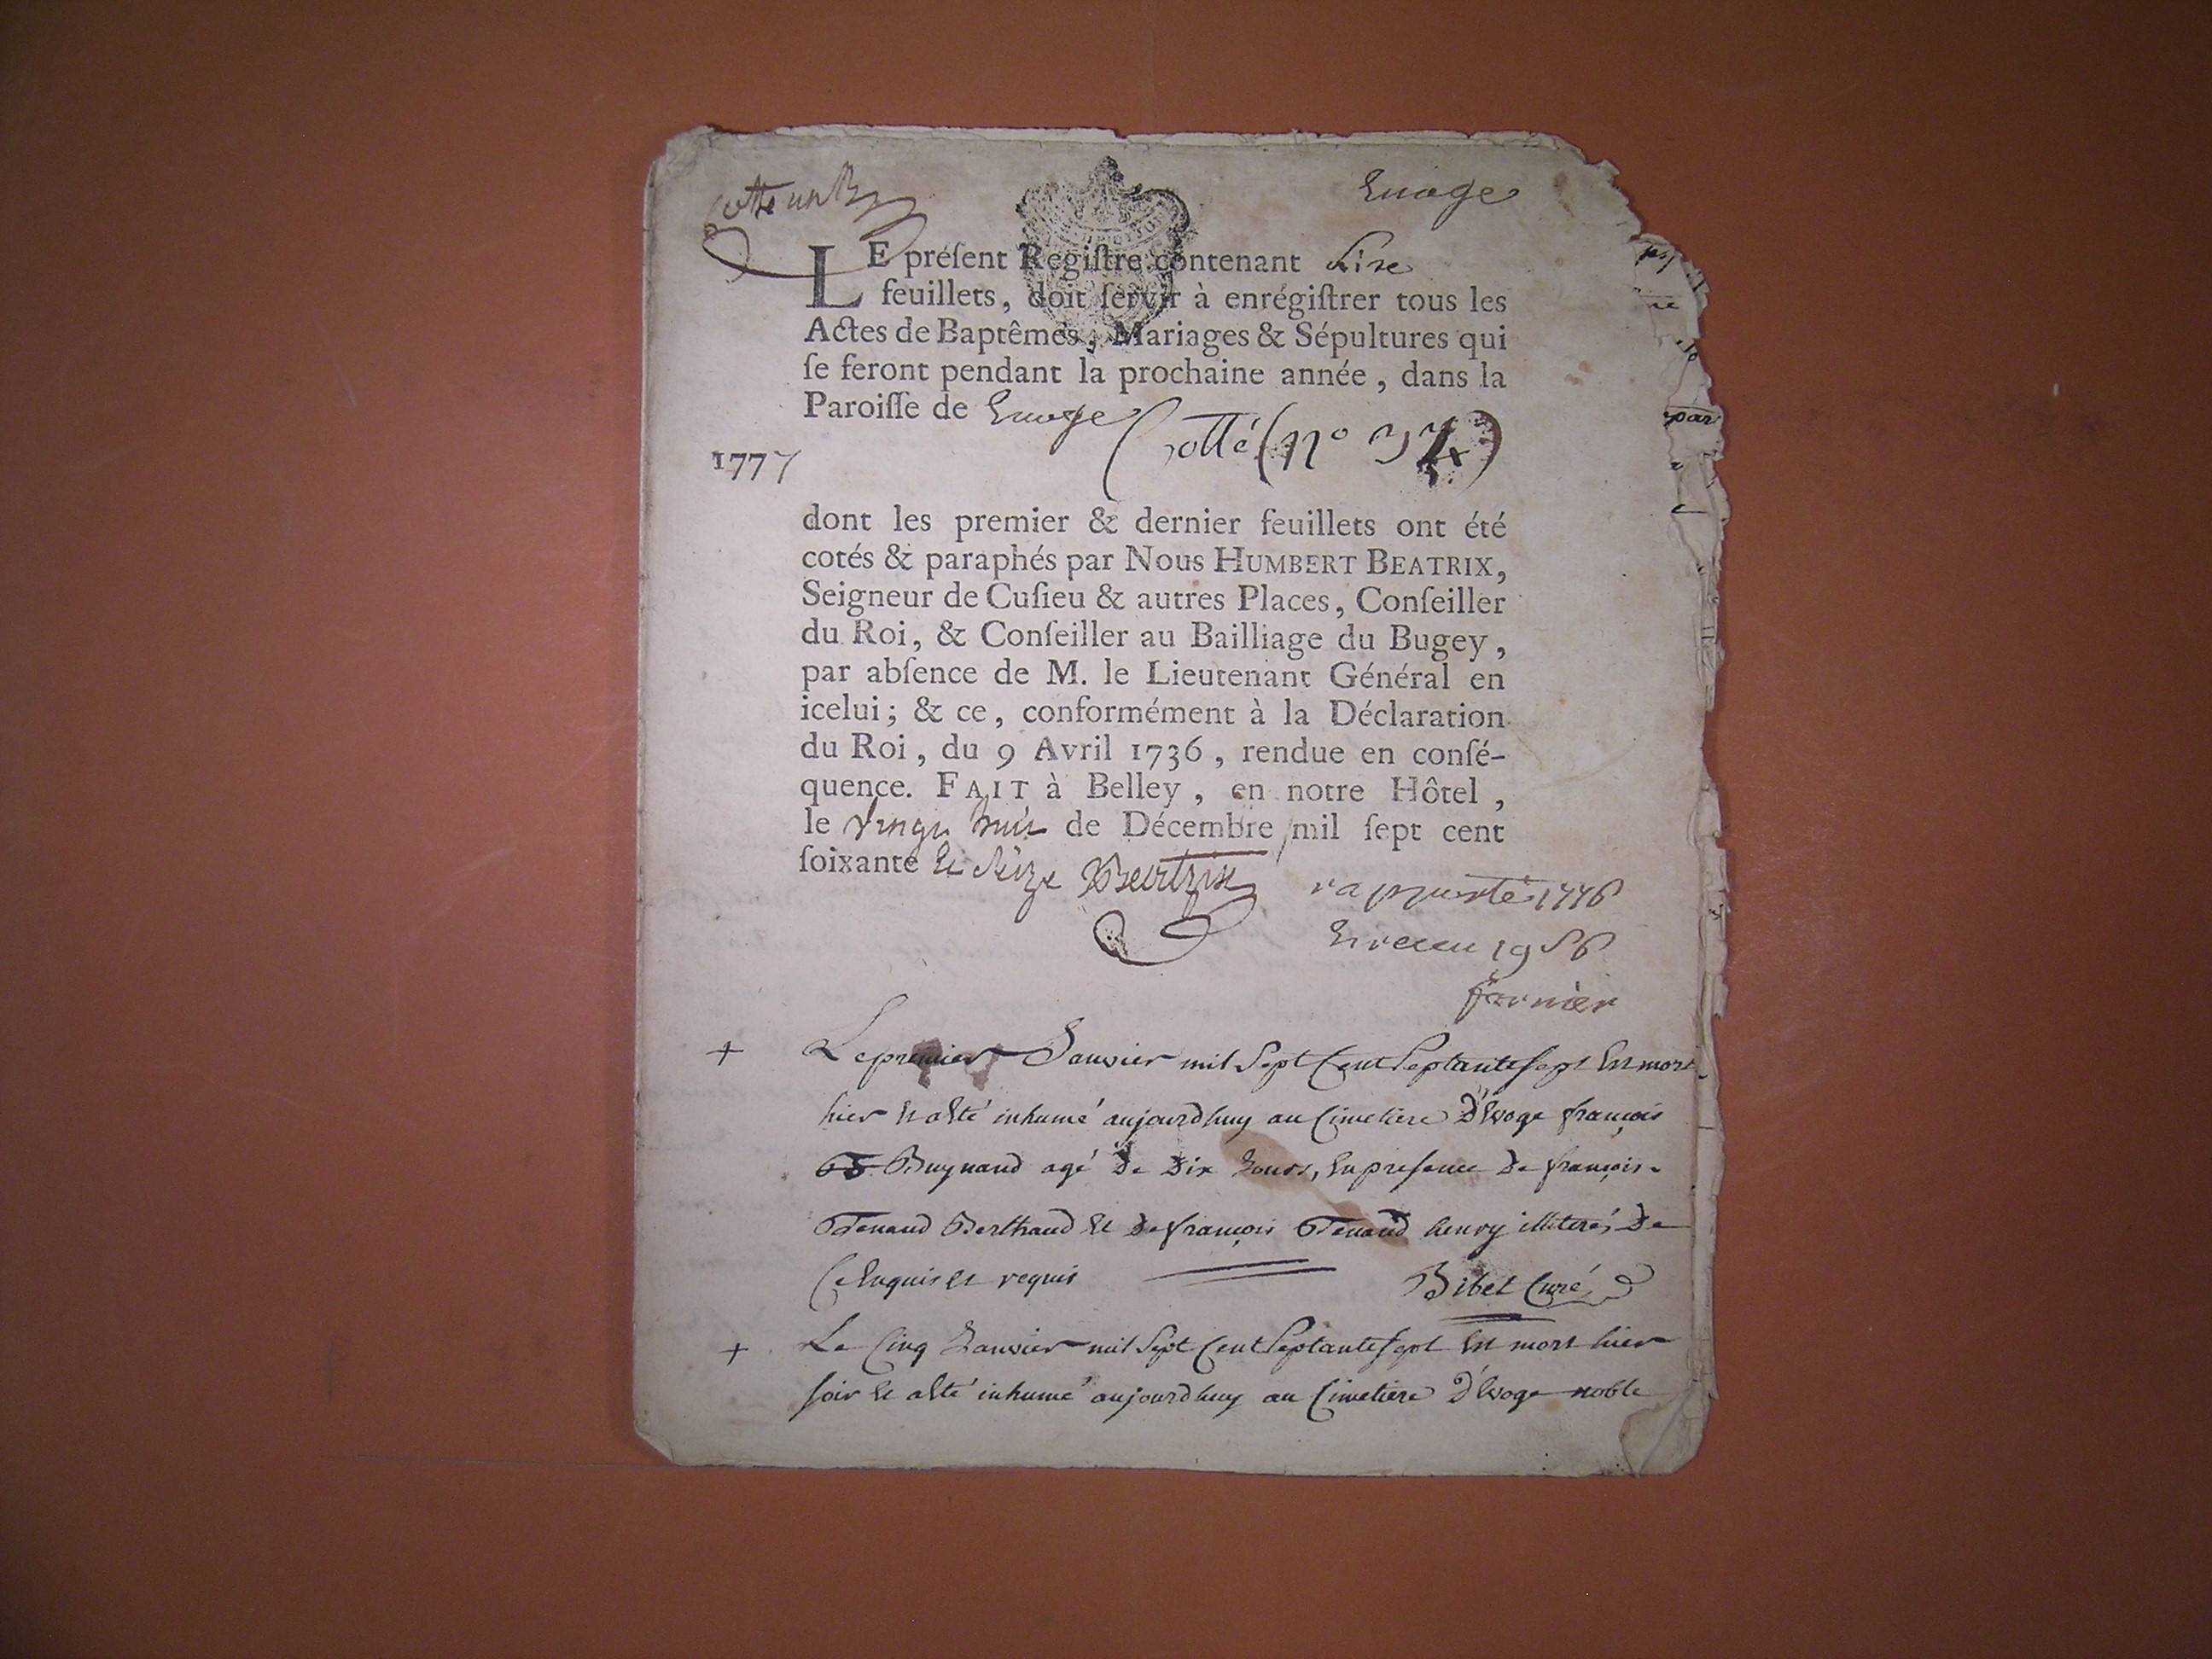 cotte un B
Evoge
LE préſent Regiſtre contenant Sixe
feuillets, doit ſervir à enrégiſtrer tous les
Actes de Baptêmes, Mariages & Sépultures qui
ſe feront pendant la prochaine année, dans la
Paroiſſe de Evoge
Cotté (no 34)
1777
dont les premier & dernier feuillets ont été
cotés & paraphés par Nous HUMBERT BEATRIX,
Seigneur de Cuſieu & autres Places, Conſeiller
du Roi, & Conſeiller au Bailliage du Bugey,
par abſence de M. le Lieutenant Général en
icelui; & ce, conformément à la Déclaration
du Roi, du 9 Avril 1736, rendue en conſé-
quence. FAIT à Belley, en notre Hôtel,
le vingt huit de Décembre mil ſept cent
ſoixante et seize Beatrix
rapporté 1776
et receu 1956
fornier
+ Le premier Janvier mil Sept Cent Septante sept Est mort
hier Et a Eté inhumé aujourdhuy au Cimetiere D'Evoge françois
Buynand agé De Dix Jours, En presence De françois
Tenand Berthaud Et De françois Tenand henry illiteré, De
Ce Enquis et requis Bibet Curé
+ Le Cinq Janvier mil Sept Cent Septante sept Est mort hier
soir Et a Eté inhumé aujourdhuy au Cimetiere D'Evoge noble
par